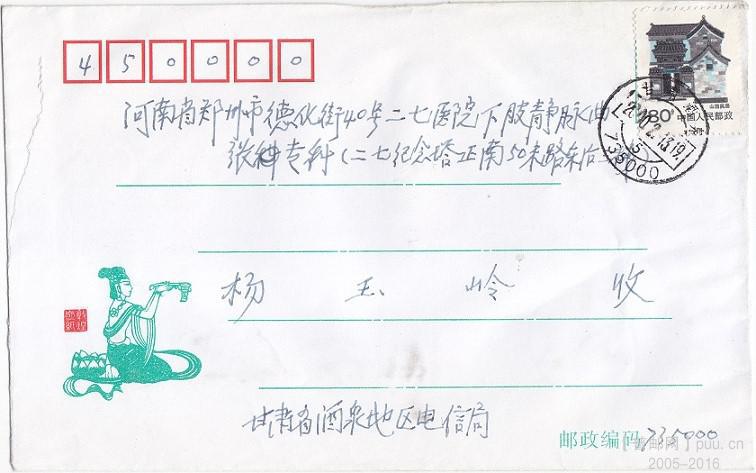 450000
山西民居
80分 中国人民邮政
河南省郑州市德化街40号二七医院下肢静脉曲
张神专科(二七纪念塔正南50米路东)
735000
杨玉岭 收
甘肃省酒泉地区电信局
邮政编码 735000
puu.cn
2005-2016